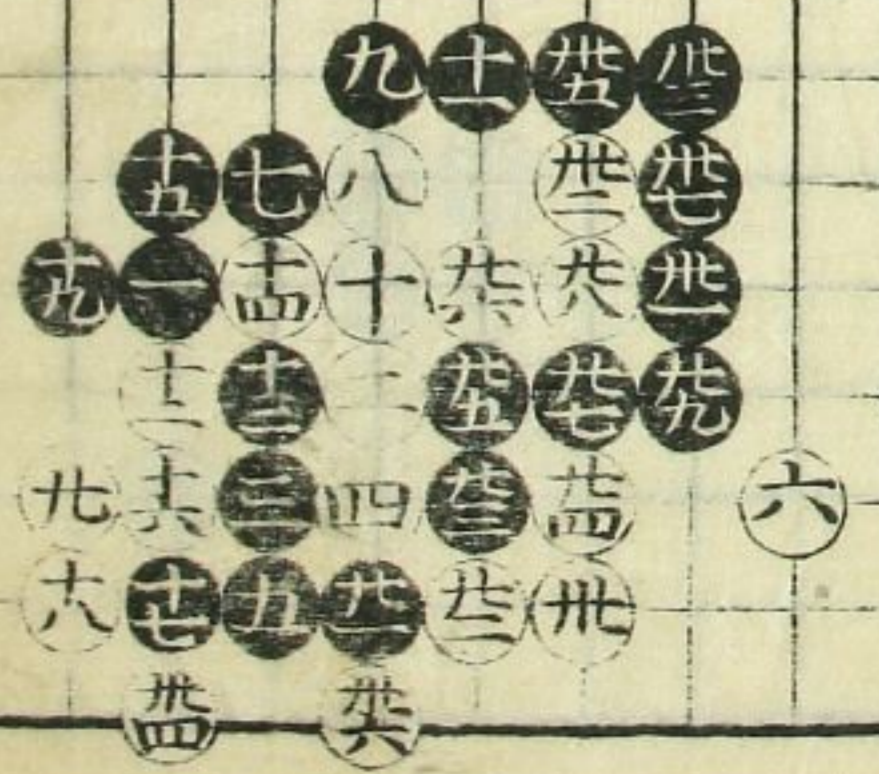 九 十一 卅五 卅三
十五 七 八 卅二 卅七
十九 一 十四 十 廿六 廿八 卅一
十二 十三 二 廿五 廿七 廿九
廿 十六 三 四 廿三 廿四 六
十八 十七 五 廿一 廿二 卅
卅四 卅六